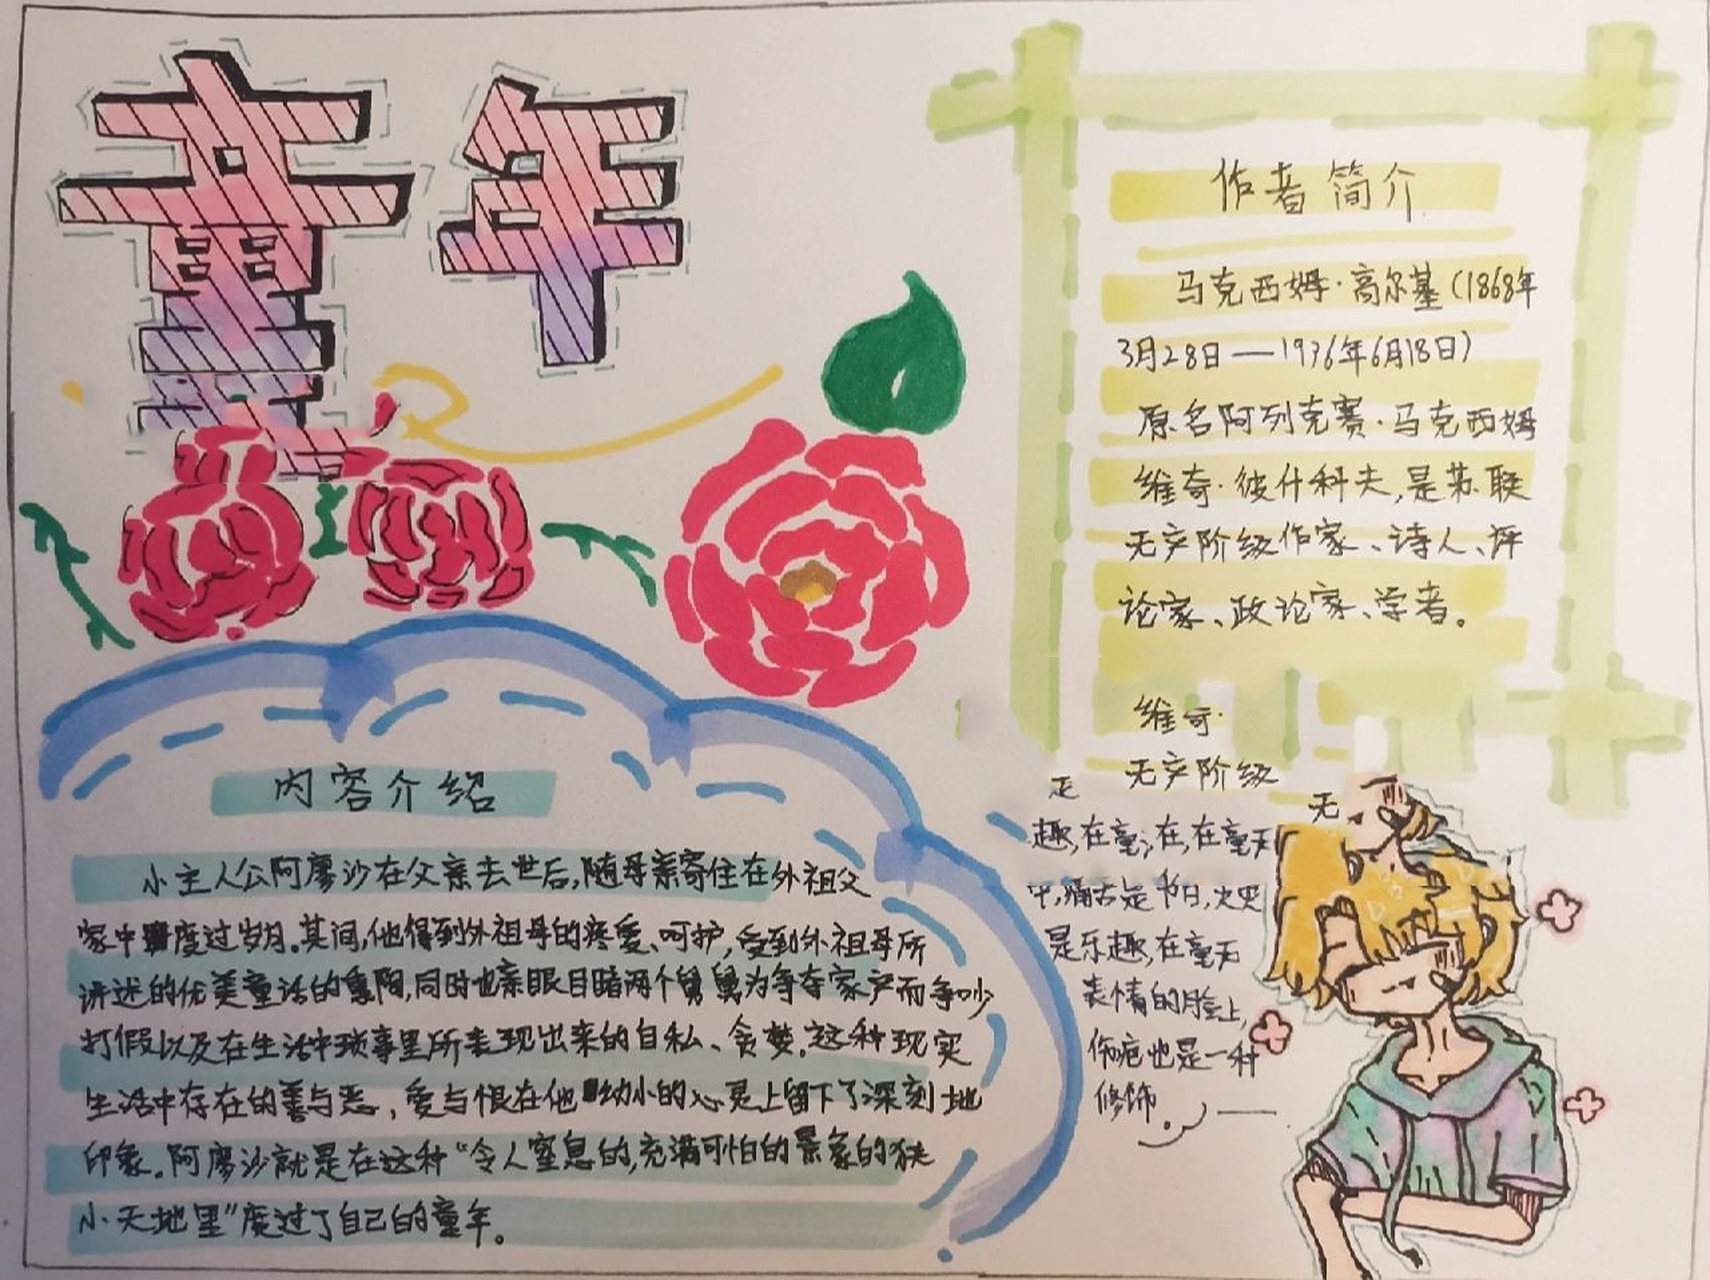 童年
作者简介
马克西姆·高尔基(1868年
3月28日——1936年6月18日)
原名阿列克赛·马克西姆
维奇·彼什科夫,是苏联
无产阶级作家、诗人、评
论家、政论家、学者。
维奇·
无产阶级
无
趣,在毫;在,在毫无
中,痛苦是节日,火灾
是乐趣,在毫无
表情的脸上,
伤疤也是一种
修饰。
内容介绍
小主人公阿廖沙在父亲去世后,随母亲寄住在外祖父
家中度过岁月。其间,他得到外祖母的疼爱、呵护,受到外祖母所
讲述的优美童话的熏陶,同时也亲眼目睹两个舅舅为争夺家产而争吵
打假以及在生活中琐事里所表现出来的自私、贪婪。这种现实
生活中存在的善与恶,爱与恨在他幼小的心灵上留下了深刻地
印象。阿廖沙就是在这种“令人窒息的,充满可怕的景象的狭
小天地里”度过了自己的童年。